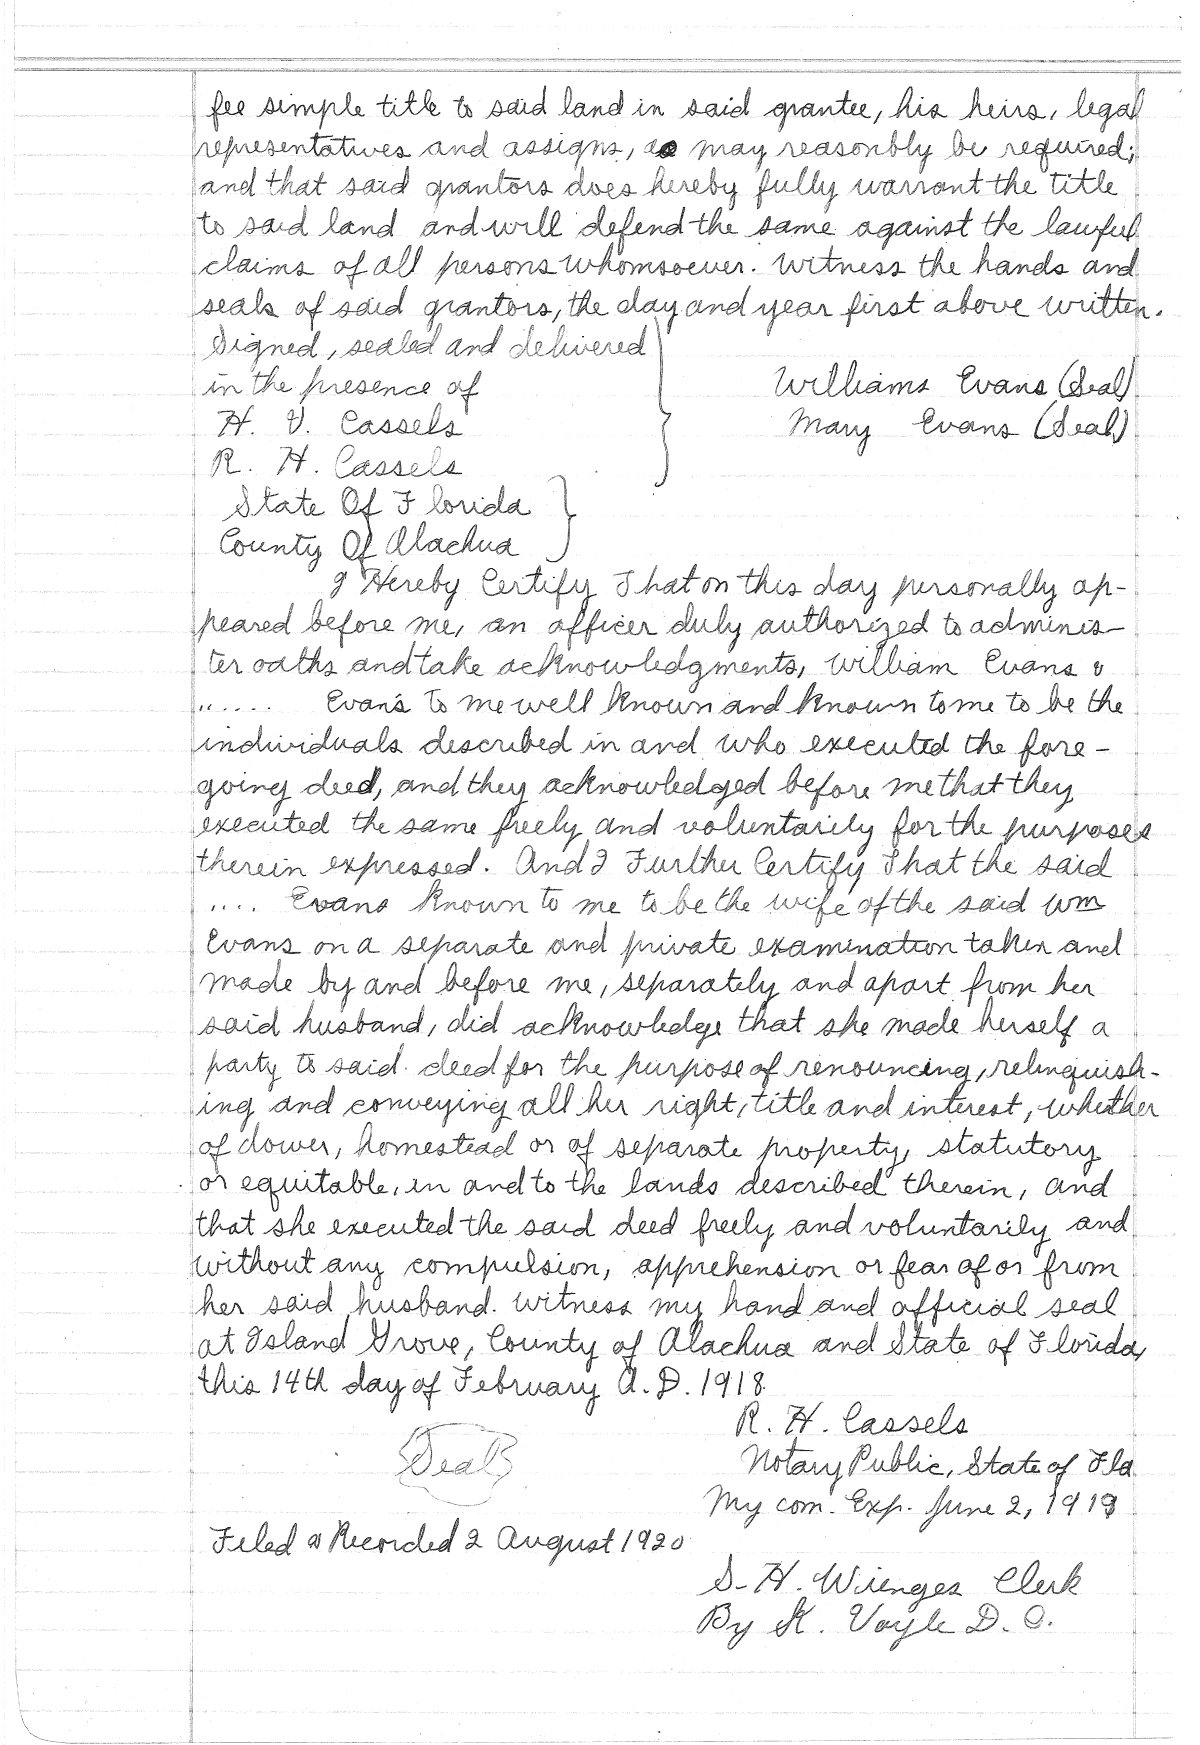 fee simple title to said land in said grantee, his heirs, legal
representatives and assigns, as may reasonbly be required;
and that said grantors does hereby fully warrant the title
to said land and will defend the same against the lawful
claims of all persons whomsoever. Witness the hands and
seals of said grantors, the day and year first above written.
Signed, sealed and delivered
in the presence of
Williams Evans (Seal)
H. V. Cassels
Mary Evans (Seal)
R. H. Cassels
State Of Florida
County Of Alachua
I Hereby Certify That on this day personally ap-
peared before me, an officer duly authorized to adminis-
ter oaths and take acknowledgments, William Evans &
...... Evans to me well known and known to me to be the
individuals described in and who executed the fore-
going deed, and they acknowledged before me that they
executed the same freely and voluntarily for the purposes
therein expressed. And I Further Certify That the said
.... Evans known to me to be the wife of the said Wm
Evans on a separate and private examination taken and
made by and before me, separately and apart from her
said husband, did acknowledge that she made herself a
party to said deed for the purpose of renouncing, relinquish-
ing and conveying all her right, title and interest, whether
of dower, homestead or of separate property, statutory
or equitable, in and to the lands described therein, and
that she executed the said deed freely and voluntarily and
without any compulsion, apprehension or fear of or from
her said husband. Witness my hand and official seal
at Island Grove, County of Alachua and State of Florida,
this 14th day of February A.D. 1918
R. H. Cassels
Seal
Notary Public, State of Fla
My com. Exp. June 2, 1919
Filed & Recorded 2 August 1920
S. H. Wienges Clerk
By K. Voyle D. C.